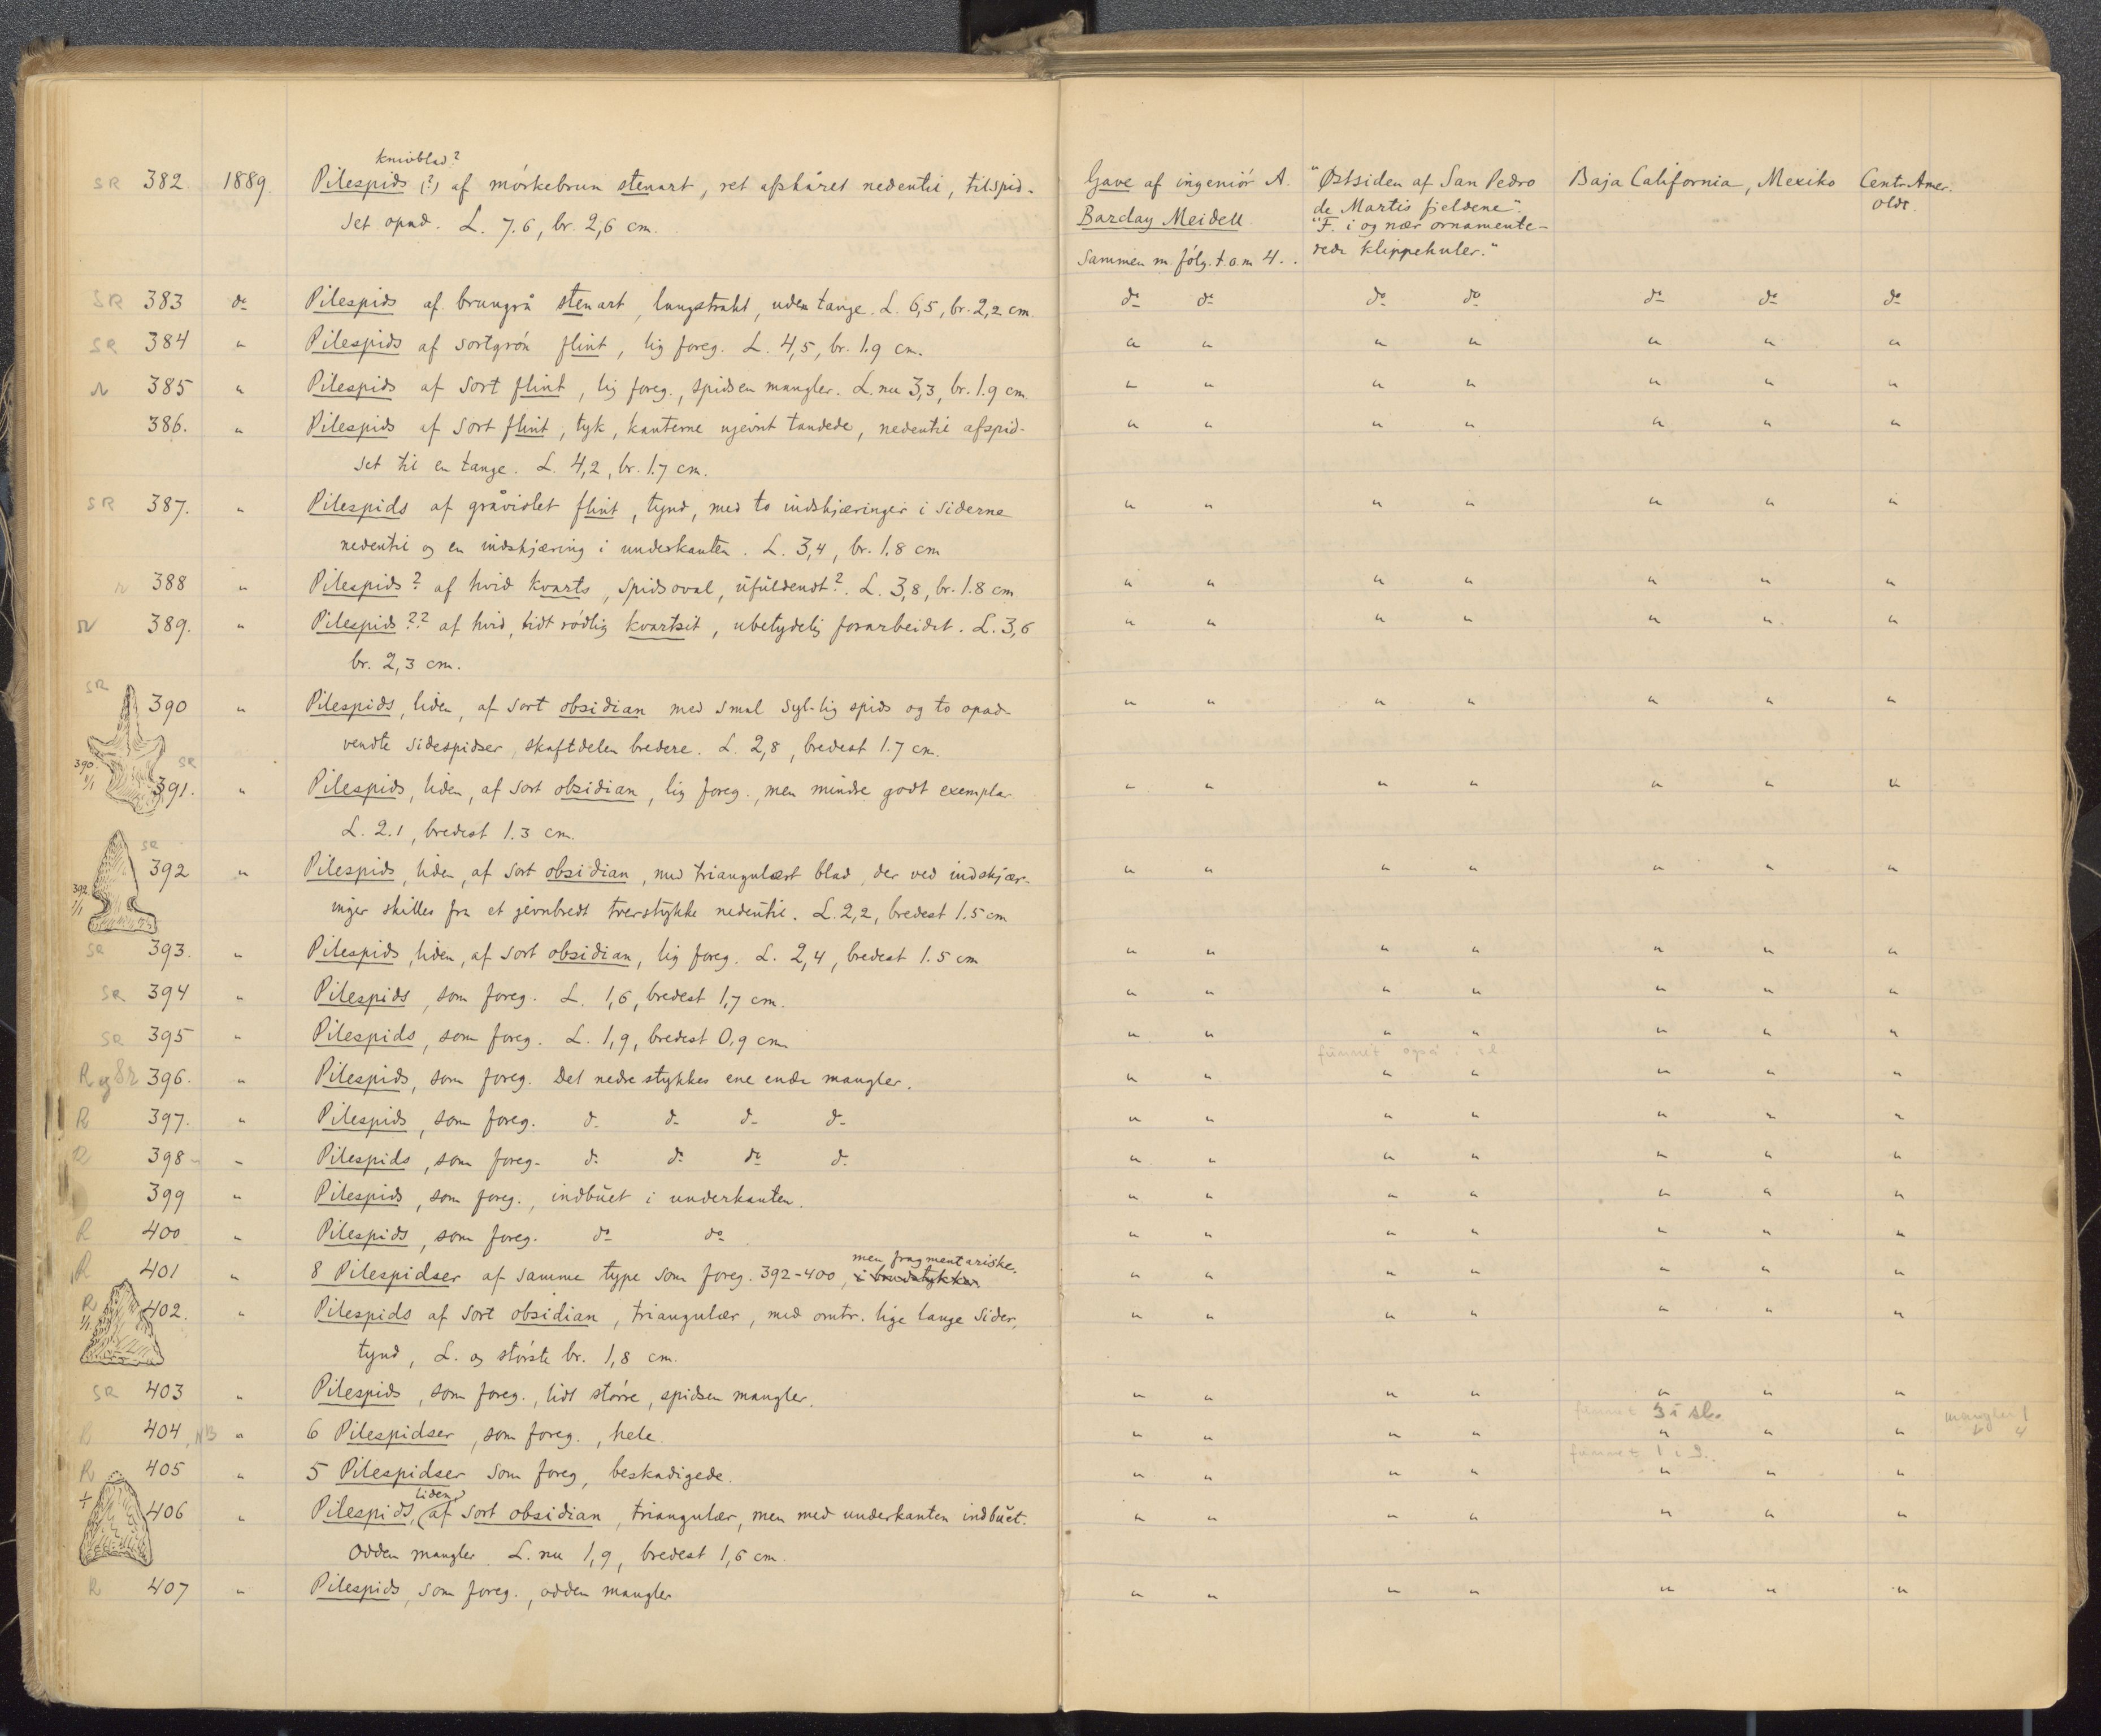 knivblad?
SR 382 1889 Pilespids (?) af mörkebrun stenart, ret afskåret nedentil, tilspid- Gave af ingeniör A. "Østsiden af San Pedro Baja California, Mexiko Centr. Amer.
set opad. L. 7.6, br. 2,6 cm. Barclay Meidell de Martis fjeldene". olds.
"F. i og nær ornamente-
Sammen m. fölg. t.o.m 4.. rede klippehuler."
SR 383 do Pilespids af brungrå stenart, langstrakt, uden tange. L. 6,5, br. 2,2 cm. do do do do do do do
SR 384 " Pilespids af sortgrön flint, lig foreg. L. 4,5, br. 1.9 cm. " " " " " " "
R 385 " Pilespids af sort flint, lig foreg., spidsen mangler. L. nu 3,3, br. 1.9 cm. " " " " " " "
386. " Pilespids af sort flint, tyk, kanterne ujevnt tandede, nedentil afspid- " " " " " " "
set til en tange. L. 4,2, br. 1.7 cm.
SR 387. " Pilespids af gråviolet flint, tynd, med to indskjæringer i siderne " " " " " " "
nedentil og en indskjæring i underkanten. L. 3,4, br. 1.8 cm
R 388 " Pilespids? af hvid kvarts, spidsoval, ufuldendt?. L. 3,8, br. 1.8 cm " " " " " " "
R 389. " Pilespids?? af hvid, lidt rödlig kvartsit, ubetydelig forarbeidet. L. 3,6 " " " " " " "
br. 2,3 cm.
SR 390 " Pilespids, liden, af sort obsidian med smal syl-lig spids og to opad- " " " " " " "
vendte sidespidser, skaftdelen bredere. L. 2,8, bredest 1.7 cm.
390. 1/1
SR 391. " Pilespids, liden, af sort obsidian, lig foreg., men mindre godt exemplar " " " " " " "
L. 2.1, bredest 1.3 cm.
SR 392 " Pilespids, liden, af sort obsidian, med triangulært blad, der ved indskjær- " " " " " " "
392 1/1
inger skilles fra et jevnbredt tverstykke nedentil. L. 2,2, bredest 1.5 cm
SR 393. " Pilespids, liden, af sort obsidian, lig foreg. L. 2,4, bredest 1.5 cm " " " " " " "
SR 394 " Pilespids, som foreg. L. 1,6, bredest 1,7 cm. " " " " " " "
SR 395 " Pilespids, som foreg. L. 1,9, bredest 0,9 cm " " " " " " "
funnet også i
R og SR 396. " Pilespids, som foreg. Det nedre stykkes ene ende mangler. " " " " " " "
R 397. " Pilespids, som foreg. do do do do " " " " " " "
R 398 " Pilespids, som foreg. do do do do " " " " " " "
399 " Pilespids, som foreg., indbuet i underkanten. " " " " " " "
R 400 " Pilespids, som foreg. do do " " " " " " "
men fragmentariske.
R 401 " 8 Pilespidser af samme type som foreg. 392-400, i brudstykker. " " " " " " "
R 1/1 402. " Pilespids af sort obsidian, triangulær, med omtr. lige lange sider, " " " " " " "
tynd, L. og störste br. 1,8 cm.
SR 403 " Pilespids, som foreg., lidt större, spidsen mangler. " " " " " " "
funnet 3 i sk. mangler 1
R 404, NB " 6 Pilespidser, som foreg., hele. " " " " " " " 4
funnet 1
R 405 " 5 Pilespidser som foreg, beskadigede. " " " " " " "
liden
406 " Pilespids, af sort obsidian, triangulær, men med underkanten indbuet. " " " " " " "
Odden mangler. L. nu 1,9, bredest 1,6 cm.
R 407 " Pilespids, som foreg., odden mangler " " " " " " "